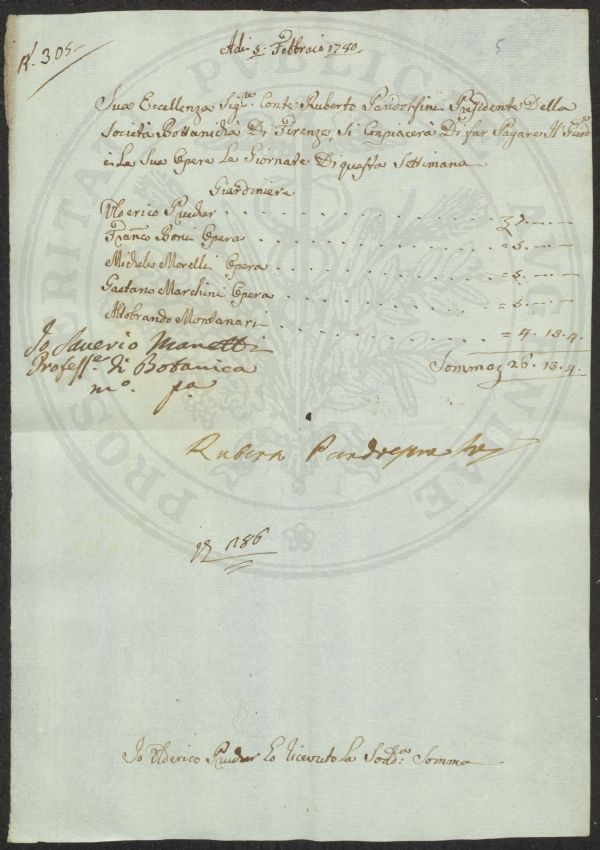 N.° 305
5
Adi 5: Febbraio 1780
Sua Eccellenza Sig.re Conte Ruberto Pandolfini Presidente Della
Società Bottanicha Di Firenze, Si Conpiacerà Di far Pagare Il
e La Sua Opere Le Giornate Di questa Settimana
Giardiniere
Ulderico
Fran.co Boni Opera = 5. — —
Michele Morelli Opera = 5. — —
Gaetano Marchini Opera = 5. — —
Aldobrando Montanari = 4. 13. 4
Somma 26. 13. 4
Io Saverio Manetti
Profess.e di Botanica
m.° p.a
1786
Io Ulderico ho ricevuto la Sod.a Somma
PROSPERITATI PUBLICAE AUGENDAE